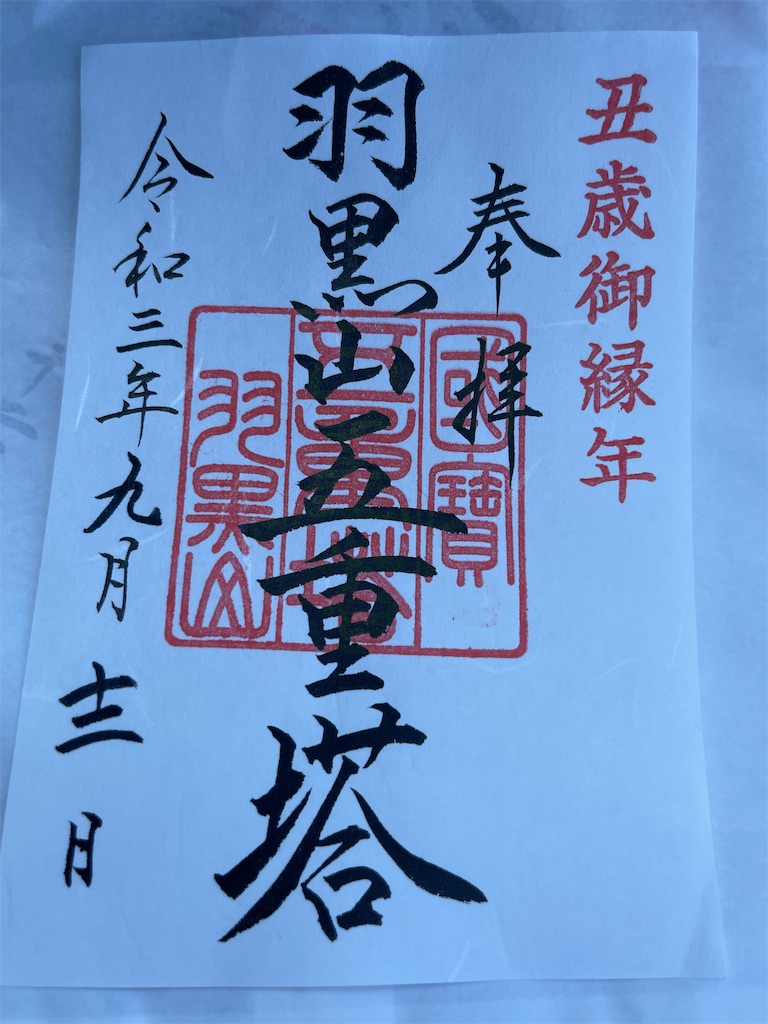 丑歳御縁年
奉拝
羽黒山五重塔
令和三年九月十二日
國寶
五重塔
羽黒山